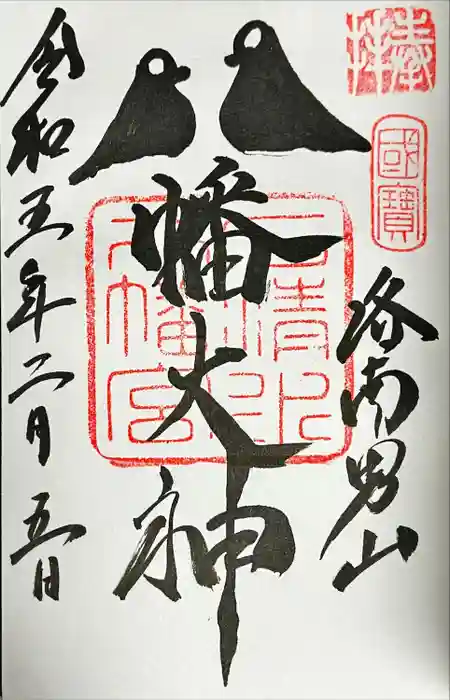 奉拝
國寶
洛南男山
八幡大神
石清水八幡宮
令和五年二月五日